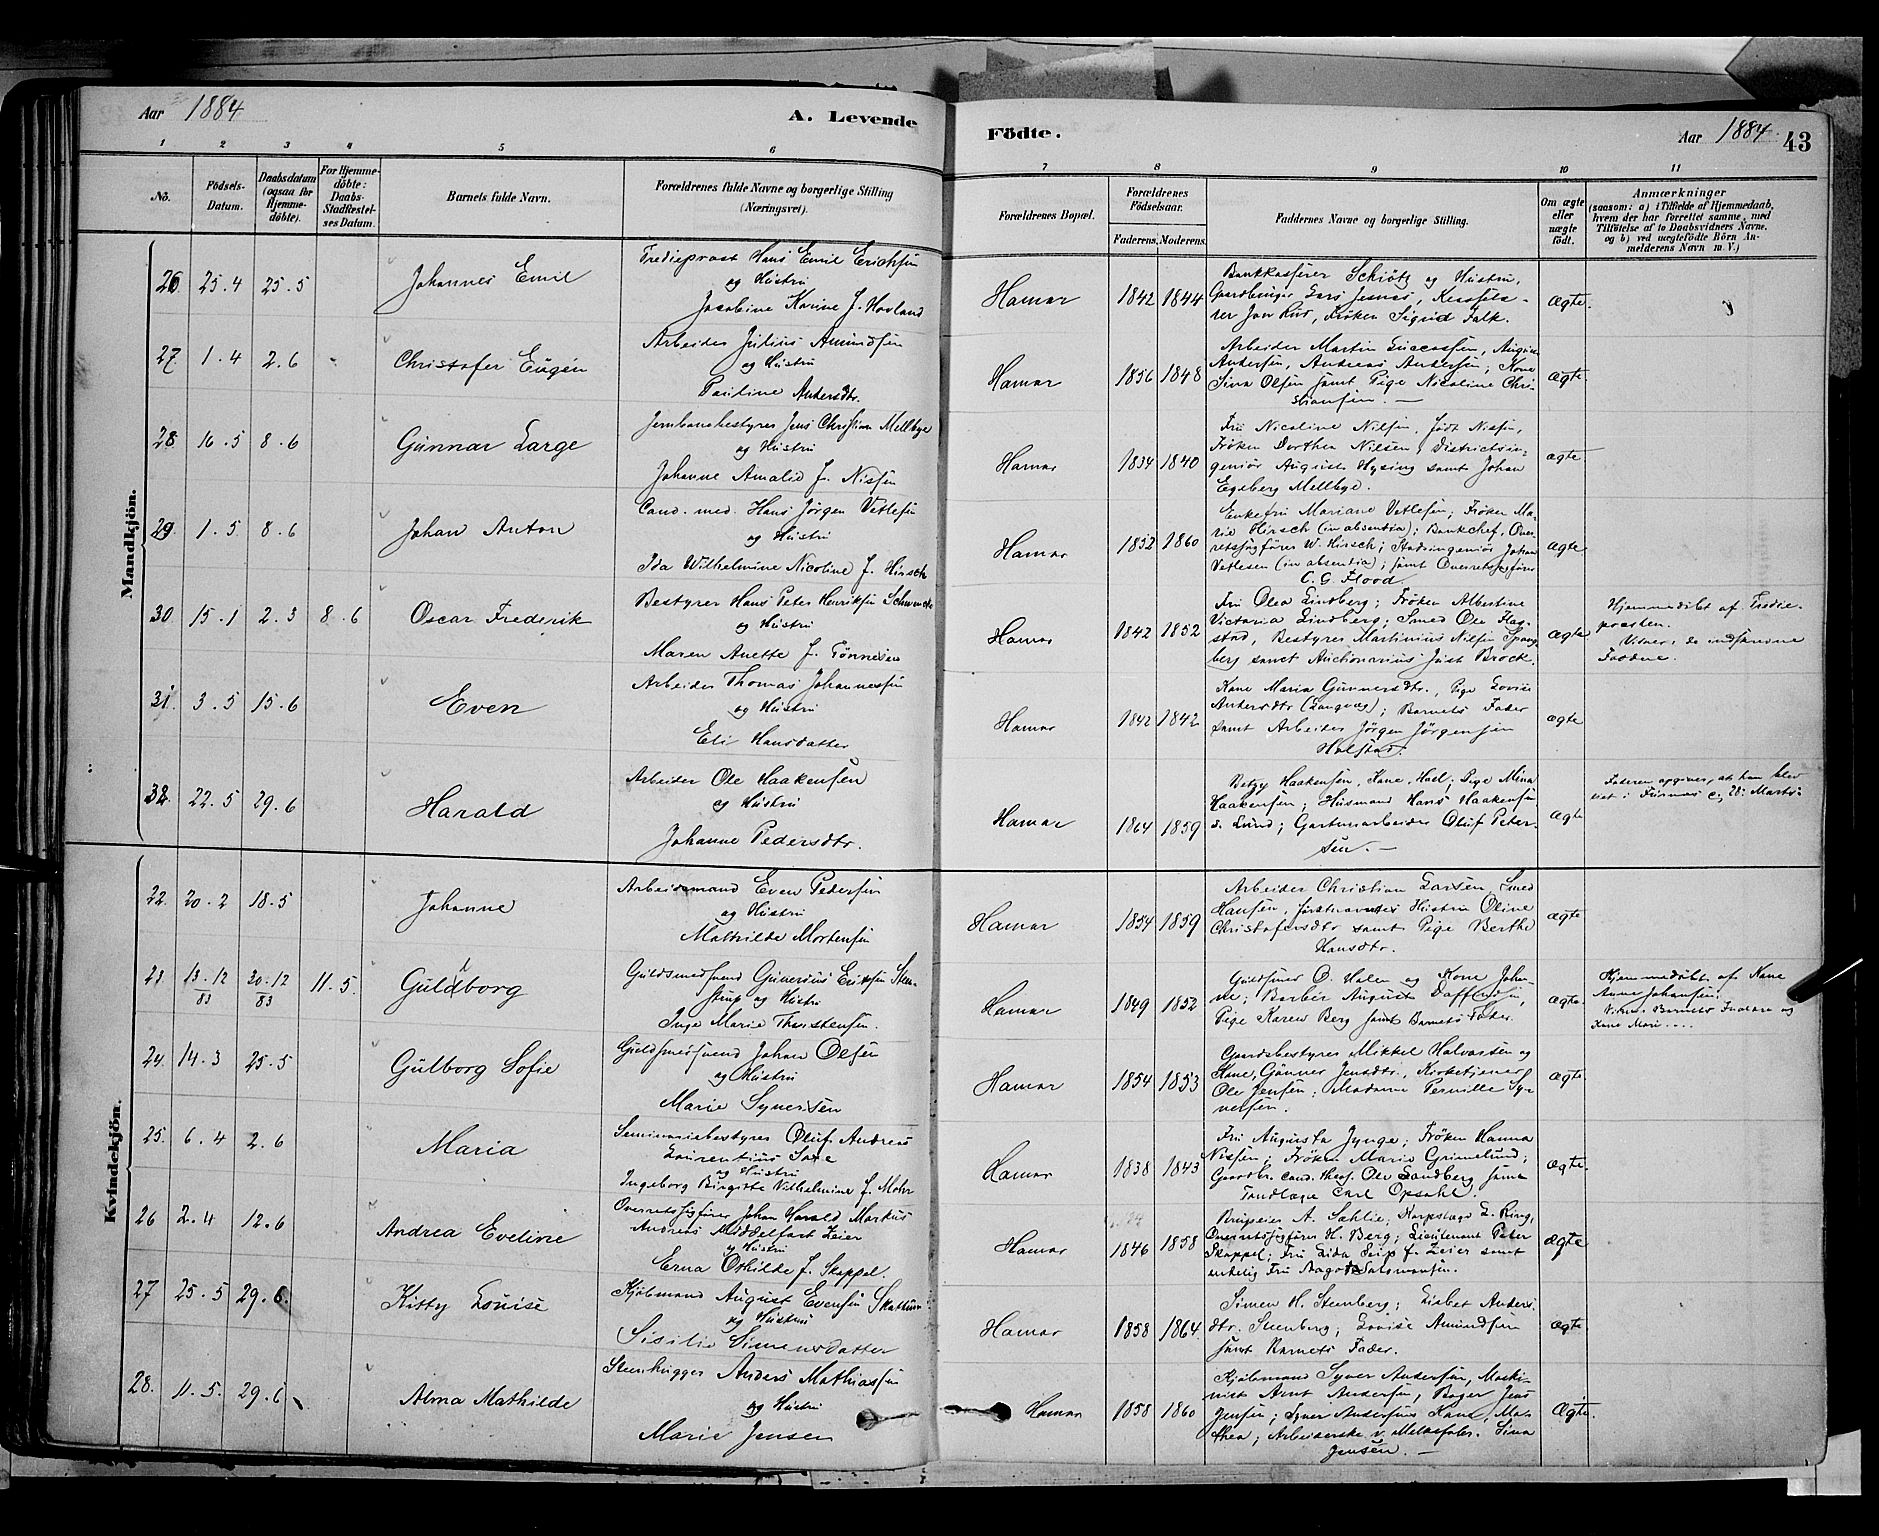 Aar 1884
A. Levende
Födte.
Aar 1884.
43
1 2 3 4 5 6 7 8 9 10 11
No.
Födsels-
Datum.
Daabsdatum
(ogsaa for
Hjemme-
döbte).
For Hjemme-
döbte:
Daabs-
Stadfæstel-
ses Datum.
Barnets fulde Navn.
Forældrenes fulde Navne og borgerlige Stilling
(Næringsvei).
Forældrenes Bopæl.
Forældrenes
Födselsaar.
Faderens. Moderens.
Faddernes Navne og borgerlige Stilling.
Om ægte
eller
uægte
födt.
Anmærkninger
(saasom: a) i Tilfælde af Hjemmedaab,
hvem der har forrettet samme, med
Tilföielse af to Daabsvidners Navne,
og b) ved uægtefödte Börn An-
melderens Navn m. V.)
Mandkjön.
26. 25.4 25.5 Johannes Emil
Tredieprest Hans Emil Erichsen
og Hustru
Jacobine Karine f. Hovland
Hamar 1842 1844
Bankkasserer Schiötz og Hustru,
Gaardbruger Lars Jesnæs,
Frøken Sigrid Falk.
ægte.
27. 1.4 2.6 Christofer Eugen
Arbeider Julius Amundsen
og Hustru
Pauline Andersdtr.
Hamar 1856 1848
Arbeider Martin Luccassen, August
Andersen, Andreas Andersen; Kone
Sina Olsen samt Pige Nicoline Chri-
stiansen.
ægte.
28. 16.5 8.6 Gunnar Lange
Jernbanebestyrer Jens Christian Mellbye
og Hustru
Johanne Amalie f. Nissen
Hamar 1834 1840
Fru Nicoline Nilsen, födt Nissen,
Frøken Dorthea Nilsen, Districtsin-
geniør August Hysing samt Johan
Egeberg Mellbye.
ægte
29. 1.5. 8.6 Johan Anton
Cand. med. Hans Jörgen Vetlesen
og Hustru
Ida Wilhelmine Nicoline f. Hirsch
Hamar 1852 1860
Enkefru Mariane Vetlesen; Frøken Ma-
rie Hirsch (in absentia); Bankchef, Over-
retssagfører W. Hirsch; Stadsingeniör Johan
Vetlesen (in absentia); samt Overretssagfører
C. G. Flood.
ægte
30. 15.1 2.3 8.6 Oscar Frederik
Bestyrer Hans Peter Henriksen
og Hustru
Maren Anette f. Tönnesen
Hamar 1842 1852
Fru Olea Lindberg; Frøken Albertine
Victoria Lindberg; Smed Ole Hag-
stad, Bestyrer Martinius Nilsen Spang-
berg samt Auctionarius Just Brock.
ægte
Hjemmedøbt af Tredie-
presten.
Vidner: de indførte
Faddere.
31. 3.5 15.6 Even
Arbeider Thomas Johannessen
og Hustru
Eli Hansdatter
Hamar 1842 1842
Kone Maria Gunnersdtr., Pige Lovise
Andersdtr (Langvæg); Barnets Fader
samt Arbeider Jörgen Jörgensen
Holstad.
ægte
32. 22.5 29.6 Harald
Arbeider Ole Haakensen
og Hustru
Johanne Pedersdtr.
Hamar 1864 1859
Betzy Haakensen, Kone, Hoel; Pige Mina
Haakensen; Husmand Hans Haakensen
s. Lund; Gartnerarbeider Oluf Peter-
sen.
ægte
Faderen opgiver, at han blev
viet i Furnæs
Kvindekjön.
22. 20.2 18.5 Johanne
Arbeidsmand Even Pedersen
og Hustru
Mathilde Mortensen
Hamar 1854 1859
Arbeider Christian Larsen, Smed
Hansen, førstnævntes Hustru Oline
Christofersdtr samt Pige Berthe
Hansdtr.
ægte
23. 13.12 83 30.12 83 11.5. Guldborg
Guldsmedsvend Gunerius Eriksen Sten-
strup og Hustru
Inge Marie Thorstensen.
Hamar 1849 1852
Guldsmed O. Holen og Kone Johan-
ne; Barber August
Pige Karen Berg samt Barnets Fader.
ægte.
Hjemmedøbt af Kone
Anna Johansen.
Vidner Barnets Forældre og
Kone Mari ....
24. 14.3 25.5 Gulborg Sofie
Guldsmedsvend Johan Olsen
og Hustru
Marie Syversen
Hamar 1854 1853
Gaardsbestyrer Mikkel Halvorsen og
Kone, Gunner Jensdtr, Kirketjener
Ole Jensen; Madame Pernille Sy-
versen.
ægte.
25. 6.4 2.6 Maria
Seminariebestyrer Oluf Andreas
Laurentius Saxe
og Hustru
Ingeborg Birgitte Vilhelmine f. Mohr
Hamar 1838 1843
Fru Augusta Jynge; Frøken Hanna
Nissen; Frøken Marie Grimelund;
Gaardbr. cand. theol. Ole Sandberg samt
Tandlæge Carl Opsahl.
ægte.
26 2.4 12.6 Andrea Eveline
Overretssagfører Johan Harald Markus
Andreas Middelfart Zeier
og Hustru
Erna Othilde f. Skappel.
Hamar 1846 1858
Brugseier A. Sæhlie; Korpslæge L. Ring,
Overretssagfører H. Berg; Lieutenant Peter
Skappel; Fru Lida Seip f. Zeier samt
endelig Fru Aagot Salomonsen.
ægte
27 25.5 29.6. Kitty Louise
Kjöbmand August Evensen Skattum
og Hustru
Sisilie Simensdatter
Hamar 1858 1864.
Simen H. Steenberg; Lisbet Anders-
dtr. Steenberg; Lovise Amundsen
samt Barnets Fader.
ægte
28. 11.5. 29.6 Alma Mathilde
Stenhugger Anders Mathiassen
og Hustru
Marie Jensen
Hamar 1858 1860
Kjöbmand Syver Andersen, Maski-
nist Arnt Andersen, Bager Jens
Jensen; Syver Andersens Kone, Mat-
thea; Arbeiderske v. Melkefabr. Lina
Jensen.
Ægte.